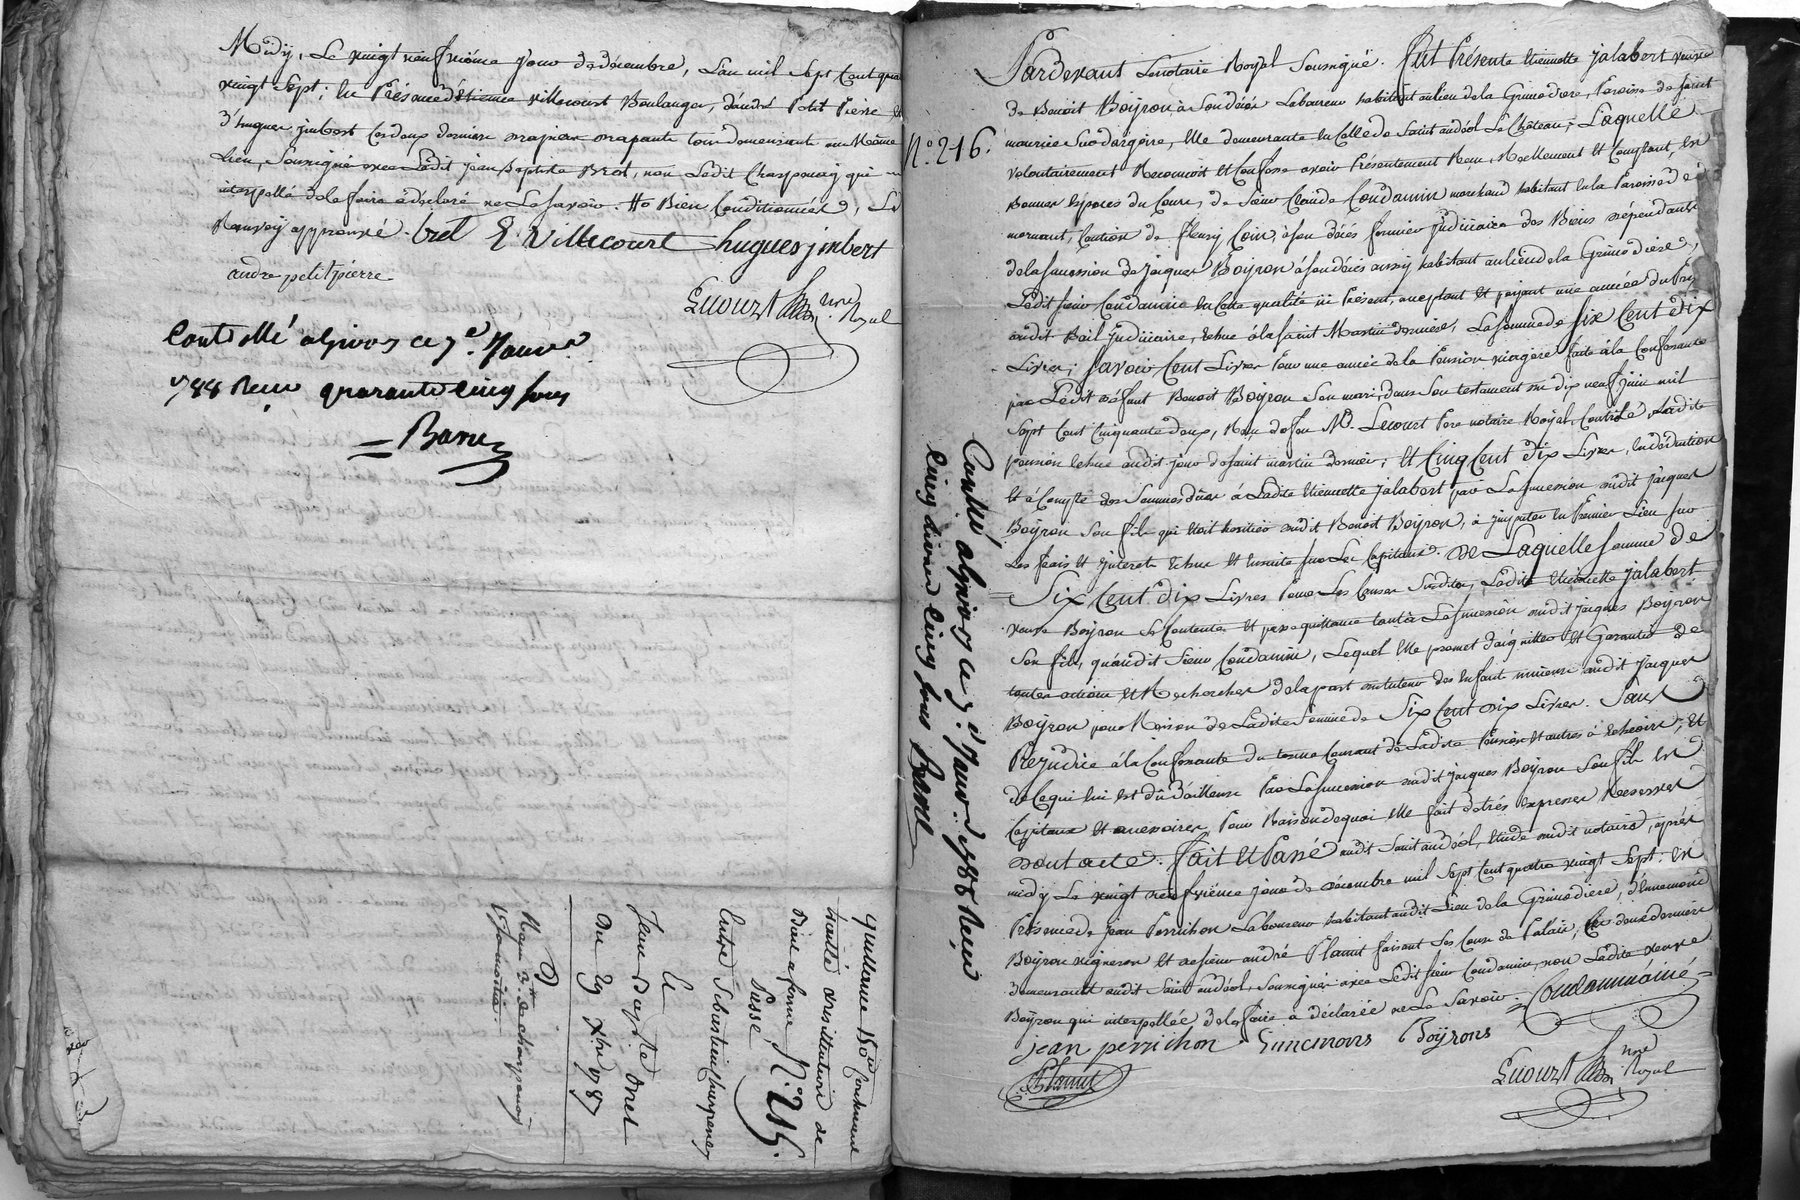 Midy, Le vingt neufvième jour de décembre, L'an mil Sept Cent quatre
vingt Sept; En Présence d'Etienne Villecourt Boulanger, d'andré Petit Pierre et
d'hugues jmbert Cordonnier tous demeurants au Même
Lieu, Soussignés avec Ledit jean Baptiste Bret, non Ledit Charpenay qui
interpellé de le faire a déclaré ne Le Savoir. Bien Conditionnées, Le
Renvoy approuvé. bret E. Villecourt hugues jmbert
andre petitpierre
Lecourt nre Royal
Controllé a Givors ce 7e. Janvr.
1788 Reçu quarante cinq sous
Barre
quittance 150lt Contenant
traitté & résiliation de
Bail a ferme
Passé
N.º 215.
Entre Sébastien Charpenay
&
Jean Baptiste Bret
du 29 Xbre 1787
Reçu 3lt de Charpenay
N.º 216.
Contrôlé a Givors ce 7e. Janvr. 1788 Reçu
cinq livres cinq sous Barre
Pardevant Le notaire Royal Soussigné. Fut Présente Etiennette jalabert veuve
de Benoit Boÿron, à Son décès Laboureur habitant au lieu de la Grimodière, Paroisse de Saint
maurice Sur dargoire, Elle demeurante en Celle de Saint andéol Le Château; Laquelle
volontairement Reconnoit et Confesse avoir Présentement Reçu, Réellement et Comptant, en
Bonnes Espèces du Cours, de Sieur Claude Condamin marchand habitant en la Paroisse de
mornant, Caution de fleury Coin, à son décès fermier judiciaire des Biens dépendants
de la Succession de Jacques Boÿron à son décès aussy habitant au lieu de la Grimodière,
Ledit Sieur Condamin en Cette qualité ici Présent, acceptant et payant une année du Prix
dudit Bail judiciaire, Echue à la Saint Martin dernière, La Somme de Six Cent dix
Livres; Savoir Cent Livres Pour une année de la Pension viagère faite à la Confessante
par Ledit défunt Benoit Boÿron Son mari, dans Son testament du dix neuf juin mil
Sept Cent Cinquante deux, Reçu de feu Me. Lecourt Père notaire Royal, Contrôlé, Ladite
pension Echue audit jour de Saint martin dernier; Et Cinq Cent dix Livres, En déduction
Et à Compte des Sommes dües à Ladite Etiennette jalabert par La Succession dudit jacques
Boÿron Son fils qui étoit héritier dudit Benoit Boÿron, à jmputer En Premier Lieu sur
Les frais Et jnterets Echus Et Ensuite sur Les Capitaux. De Laquelle Somme de
Six Cent dix Livres Pour Les Causes Susdites, Ladite Etiennette jalabert
veuve Boÿron Se Contente Et passe quittance tant à La Succession dudit jacques Boÿron
Son fils, qu'audit Sieur Condamin, Lequel Elle promet d'acquitter Et Garantir de
toutes actions Et Recherches de la part du tuteur des Enfants mineurs dudit jacques
Boÿron pour Raison de Ladite Somme de Six Cent dix Livres. Sans
Préjudice à la Confessante du terme Courant de Ladite Pension Et autres à Echeoir, Et
de Ce qui lui Est dû d'ailleurs Par La Succession dudit jacques Boÿron Son fils En
Capitaux Et accessoires Pour Raison de quoi Elle fait de très Expresses Réserves
dont acte. Fait Et Passé audit Saint andéol, Etude dudit notaire, après
midy Le vingt neufvième jour de décembre mil Sept Cent quatre vingt Sept; En
Présence de jean Perrichon Laboureur habitant audit Lieu de la Grimodière, d'Ennemond
Boÿron vigneron Et de Sieur andré Flamit faisant Ses Cours de Palais, Ces deux derniers
demeurants audit Saint andéol, Soussignés avec Ledit Sieur Condamin, non Ladite veuve
Boÿron qui interpellée de le faire a déclarée ne Le Savoir. Condaminé
jean perrichon Ennemons Boÿrons
Flamit
Lecourt nre Royal